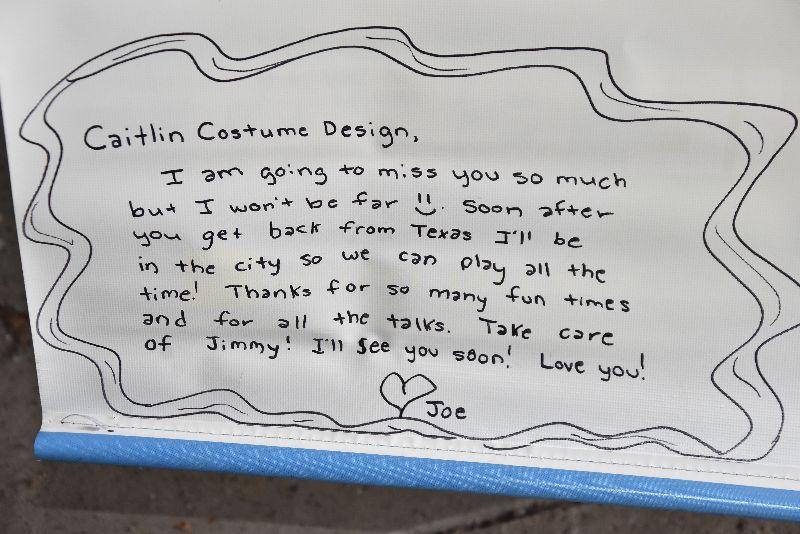 Caitlin Costume Design,
I am going to miss you so much
but I won't be far :). Soon after
you get back from Texas I'll be
in the city so we can play all the
time! Thanks for so many fun times
and for all the talks. Take care
of Jimmy! I'll see you soon! Love you!
Joe